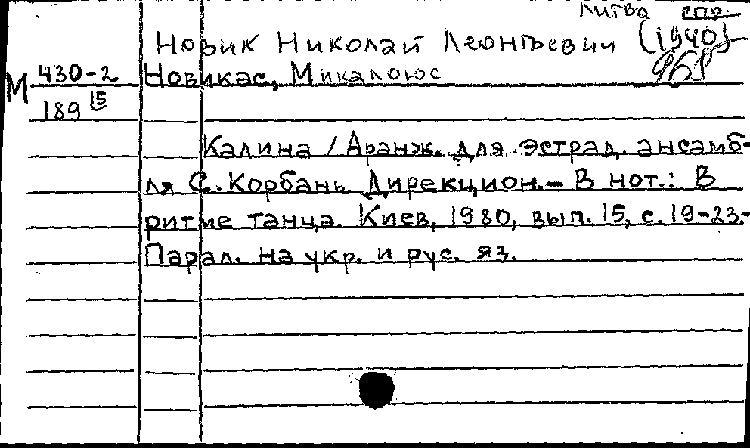 Литва спр.
Новик Николай Леонтьевич (1940)
М 430-2 Новикас, Микалоюс
189 15
Калина / Аранж. для эстрад. ансамб-
ля С. Корбань Дирекцион. – В нот.: В
ритме танца. Киев, 1980, вып. 15, с. 19-23.-
Парал. на укр. и рус. яз.